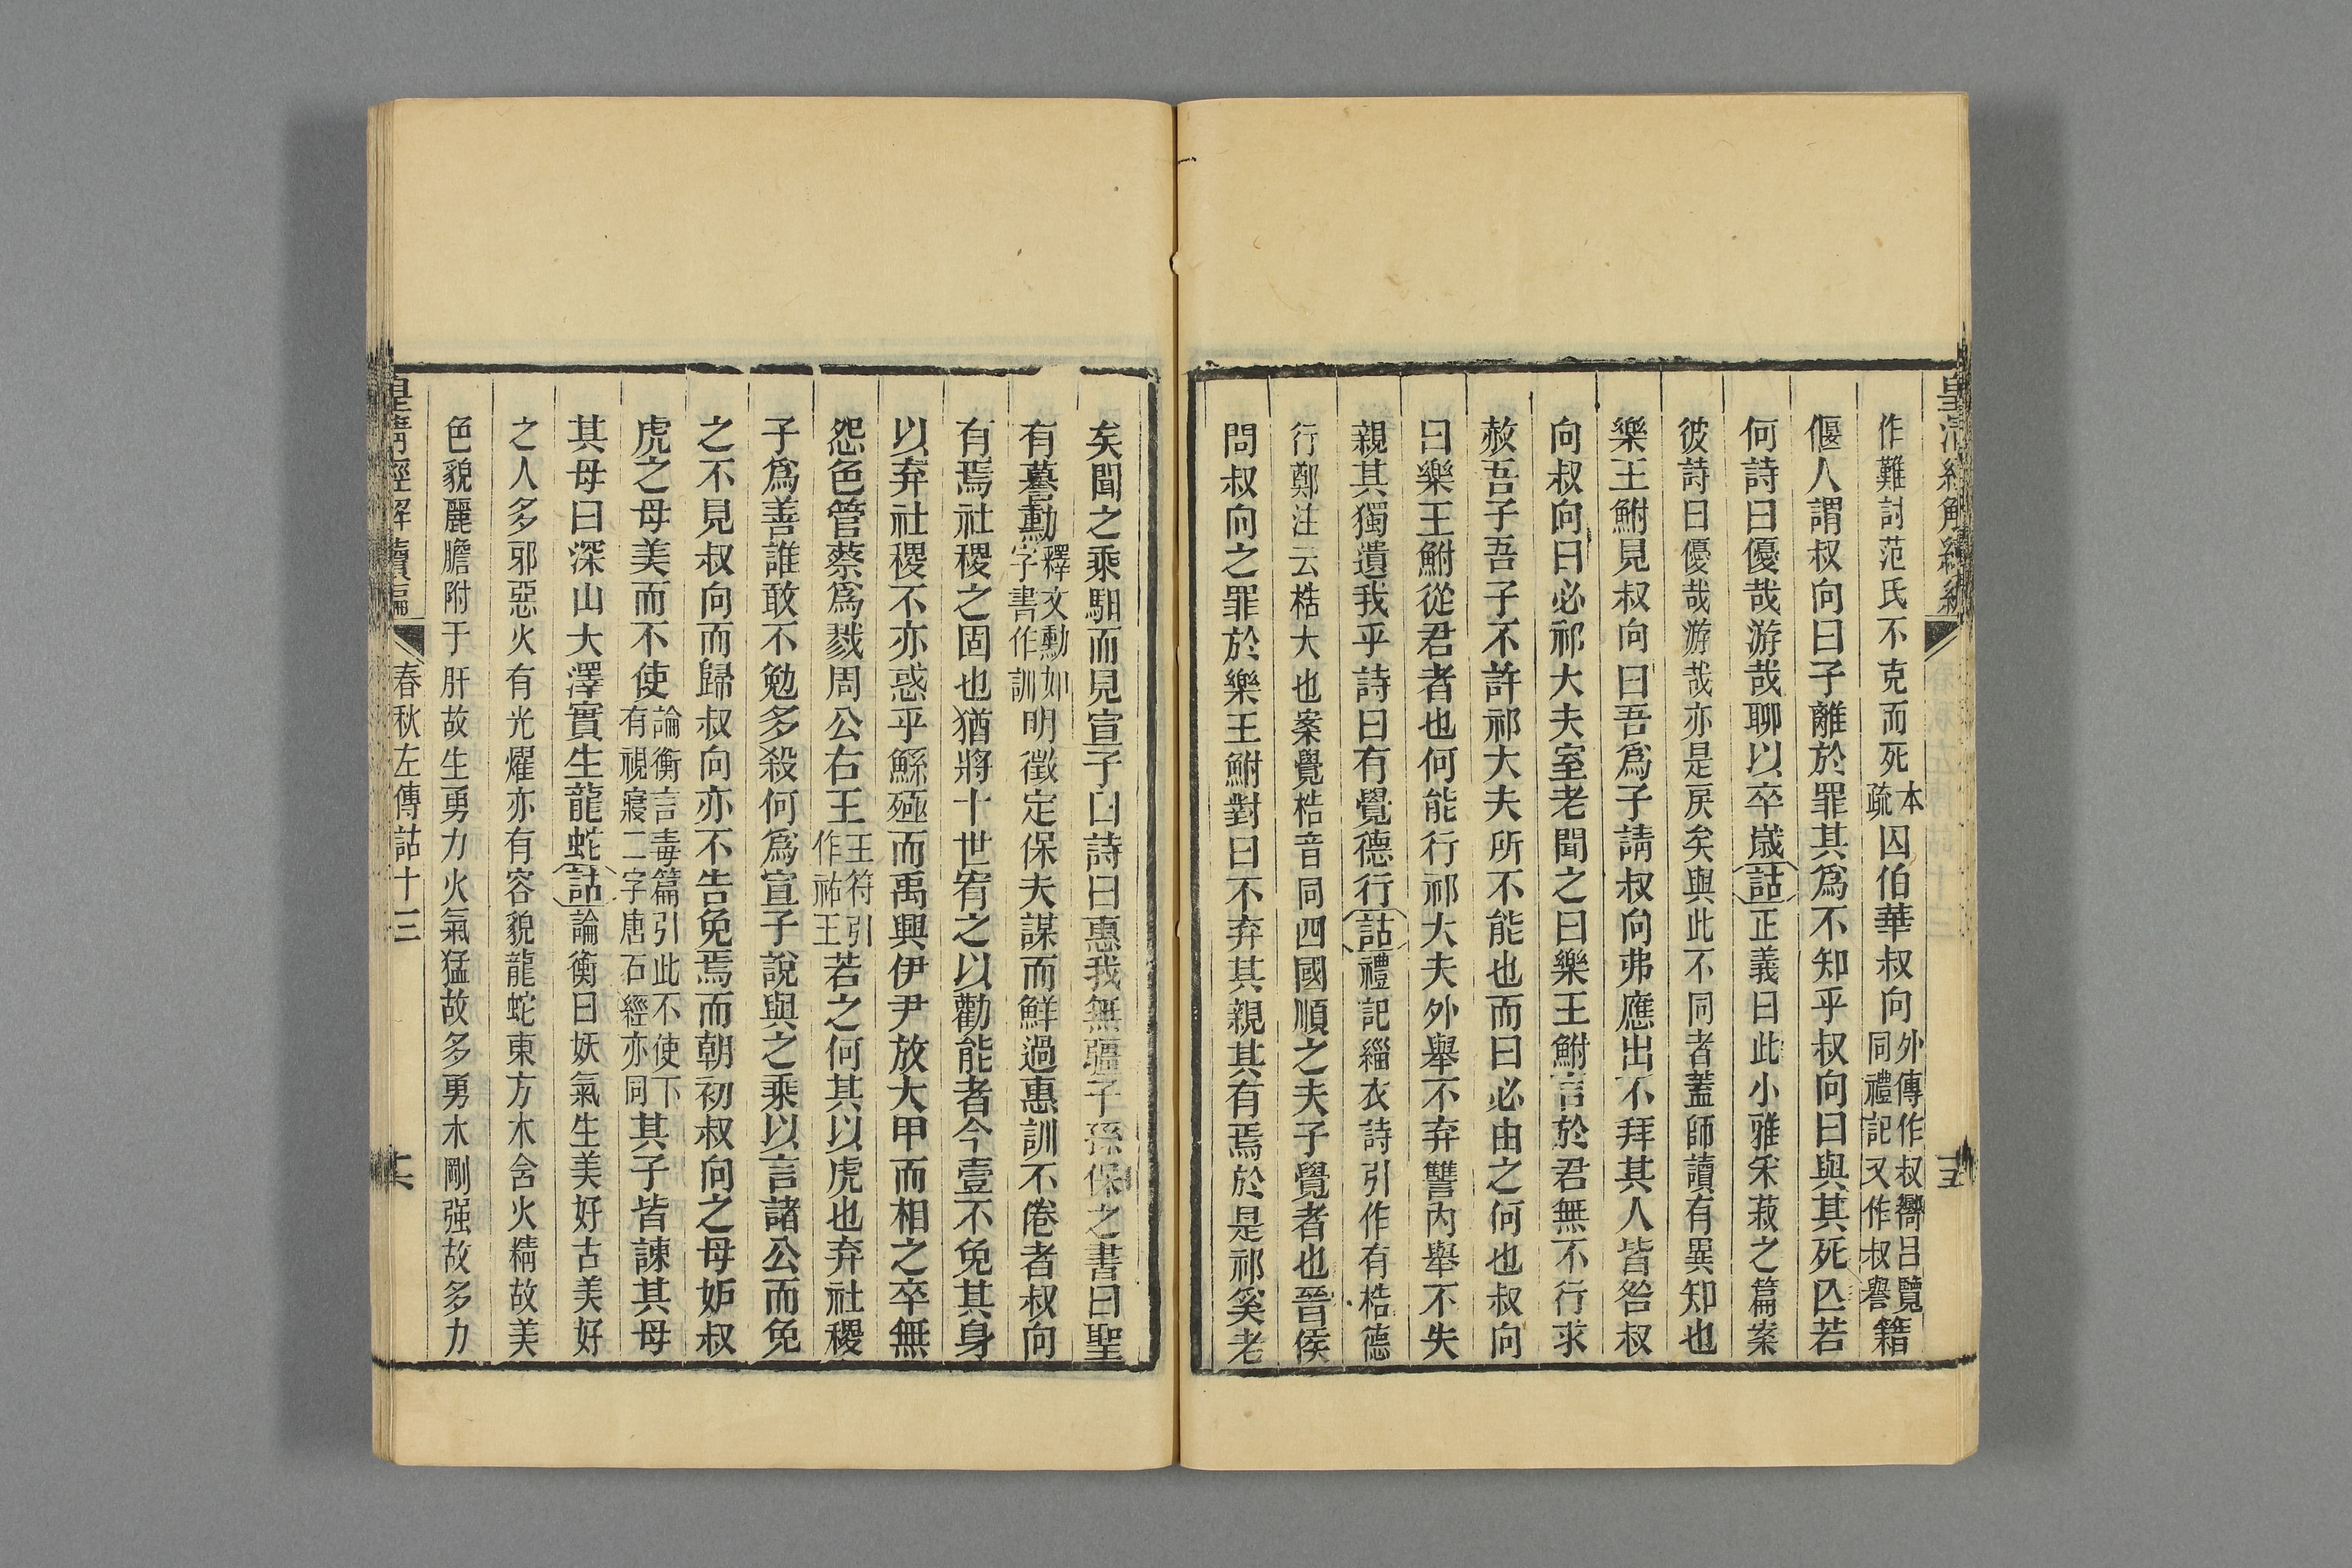 皇清經解續編
作難討范氏不克而死本疏囚伯華叔向外傳作叔嚮呂覽同禮記又作叔譽籍
偃人謂叔向曰子離於罪其爲不知乎叔向曰與其死亾若
何詩曰優哉游哉聊以卒歲詁正義曰此小雅采菽之篇案
彼詩曰優哉游哉亦是戾矣與此不同者蓋師讀有異知也
樂王鮒見叔向曰吾爲子請叔向弗應出不拜其人皆咎叔
向叔向曰必祁大夫室老聞之曰樂王鮒言於君無不行求
赦吾子吾子不許祁大夫所不能也而曰必由之何也叔向
曰樂王鮒從君者也何能行祁大夫外舉不弃讐內舉不失
親其獨遺我乎詩曰有覺德行詁禮記緇衣詩引作有梏德
行鄭注云梏大也案覺梏音同四國順之夫子覺者也晉侯
問叔向之罪於樂王鮒對曰不弃其親其有焉於是祁奚老
矣聞之乘馹而見宣子曰詩曰惠我無疆子孫保之書曰聖
有謩勳釋文勳如字書作訓明徵定保夫謀而鮮過惠訓不倦者叔向
有焉社稷之固也猶將十世宥之以勸能者今壹不免其身
以弃社稷不亦惑乎鯀殛而禹興伊尹放大甲而相之卒無
怨色管蔡爲戮周公右王王符引作祐王若之何其以虎也弃社稷
子爲善誰敢不勉多殺何爲宣子說與之乘以言諸公而免
之不見叔向而歸叔向亦不告免焉而朝初叔向之母妒叔
虎之母美而不使論衡言毒篇引此不使下有視寢二字唐石經亦同其子皆諫其母
其母曰深山大澤實生龍蛇詁論衡曰妖氣生美好古美好
之人多邪惡火有光燿亦有容貌龍蛇東方木含火精故美
色貌麗膽附于肝故生勇力火氣猛故多勇木剛强故多力
皇清經解續編 春秋左傳詁十三